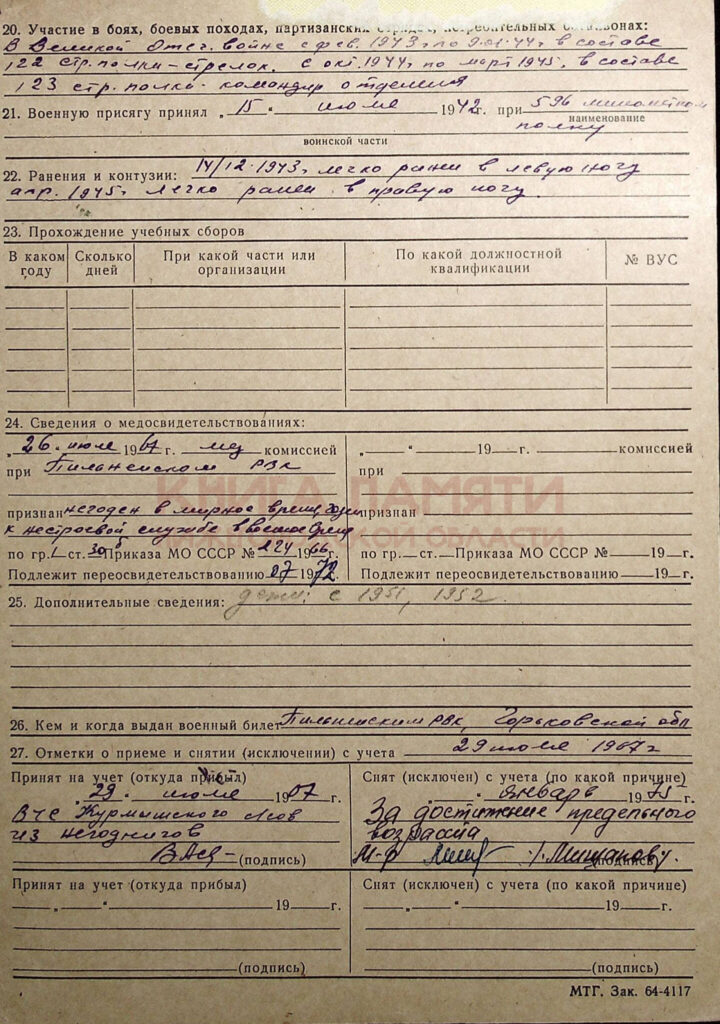 20. Участие в боях, боевых походах, партизанских отрядах, истребительных батальонах:
В Великой Отеч. войне с фев. 1943 г по 9.01.44 г. в составе
122 стр. полка - стрелок. с окт. 1944 г по март 1945, в составе
123 стр. полка - командир отделения
21. Военную присягу принял „15“ июля 1942 г. при 596 минометном
наименование
полку
воинской части
22. Ранения и контузии: 14/12.1943 г легко ранен в левую ногу
апр. 1945 г легко ранен в правую ногу.
23. Прохождение учебных сборов
В каком году Сколько дней При какой части или организации По какой должностной квалификации № ВУС
24. Сведения о медосвидетельствованиях:
„26“ июля 1967 г. мед комиссией „ “ 19 г. комиссией
при Пильненском РВК при
КНИГА ПАМЯТИ
признан негоден в мирное время, годен признан
к нестроевой службе в военное время
ОБЛАСТИ
по гр. I ст. 30 Приказа МО СССР № 224 1966 г. по гр. ст. Приказа МО СССР № 19 г.
Подлежит переосвидетельствованию 07 1972 Подлежит переосвидетельствованию 19 г.
25. Дополнительные сведения: дети: с 1951, 1952.
26. Кем и когда выдан военный билет Пильненским РВК, Горьковской обл
27. Отметки о приеме и снятии (исключении) с учета 29 июля 1967 г
Принят на учет (откуда прибыл) Снят (исключен) с учета (по какой причине)
„29“ июля 1967 г. „ “ январь 1975 г.
ВУС Курмышского За достижение предельного
из негодных возраста
(подпись) М-р (подпись)
Принят на учет (откуда прибыл) Снят (исключен) с учета (по какой причине)
„ “ 19 г. „ “ 19 г.
(подпись) (подпись)
МТГ. Зак. 64-4117